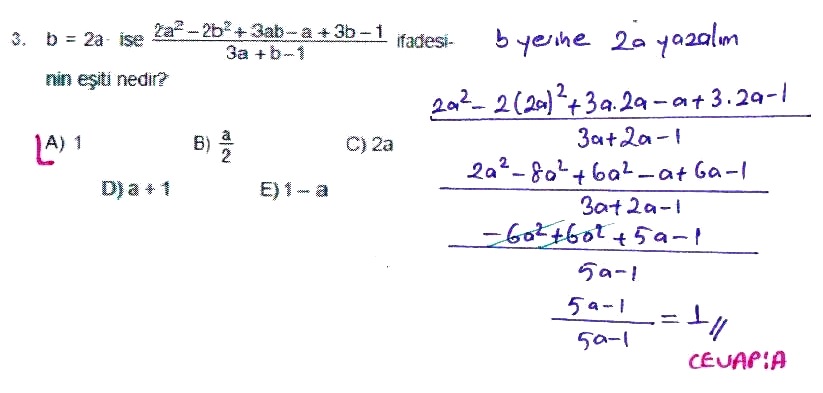 3. b = 2a ise (2a² – 2b² + 3ab – a + 3b – 1)/(3a + b – 1) ifadesi-
nin eşiti nedir?
A) 1 B) a/2 C) 2a
D) a + 1 E) 1 – a
b yerine 2a yazalım
(2a² – 2(2a)² + 3a.2a – a + 3.2a – 1)/(3a + 2a – 1)
(2a² – 8a² + 6a² – a + 6a – 1)/(3a + 2a – 1)
(–6a² + 6a² + 5a – 1)/(5a – 1)
(5a – 1)/(5a – 1) = 1 //
CEVAP:A